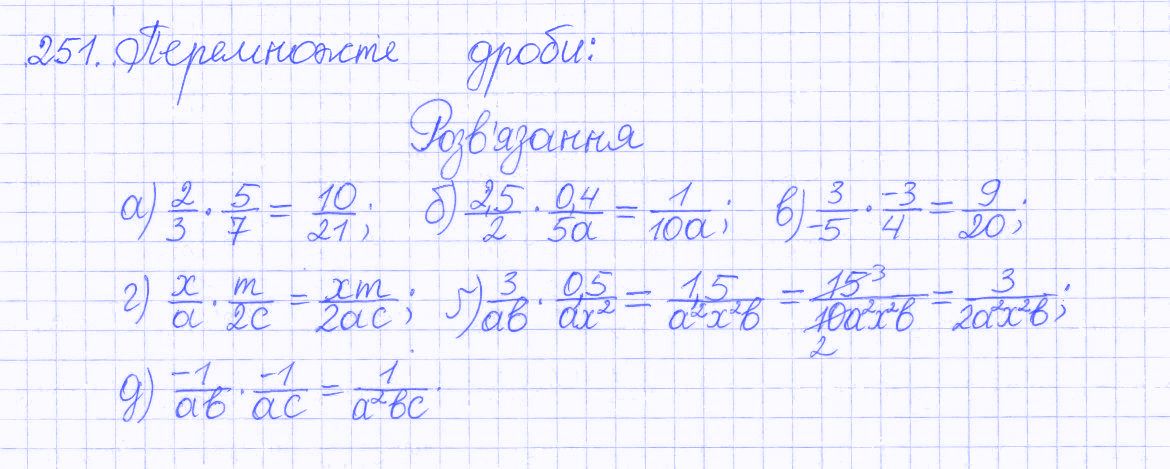 251. Перемножте дроби:
Розв'язання
а) 2/3 · 5/7 = 10/21; б) 2,5/2 · 0,4/5a = 1/10a; в) 3/-5 · -3/4 = 9/20;
г) x/a · m/2c = xm/2ac; ґ) 3/ab · 0,5/ax² = 1,5/a²x²b = 15³/10₂a²x²b = 3/2a²x²b;
д) -1/ab · -1/ac = 1/a²bc.